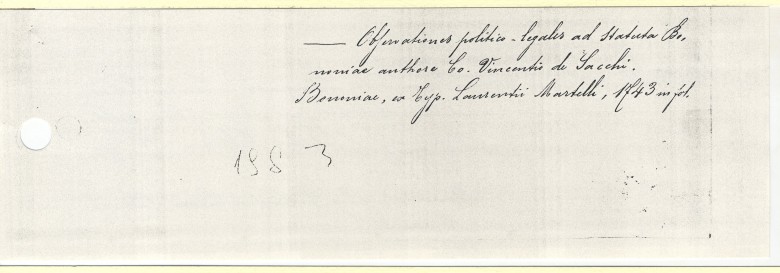 — Observationes politico-legales ad Statuta Bo-
noniae authore Co. Vincentio de Sacchi.
Bononiae, ex Typ. Laurentii Martelli, 1743 in fol.
198 3